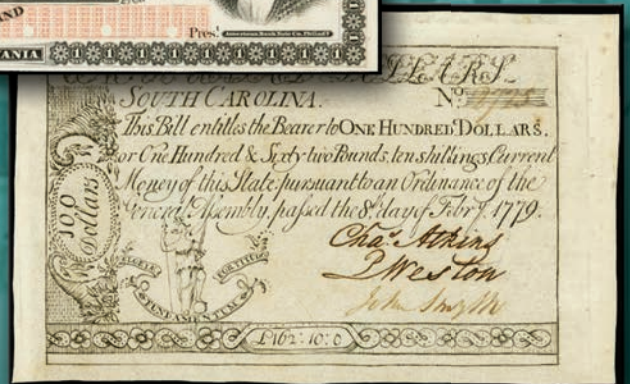 AND
Pres.t American Bank Note Co. Philad.a
VANIA
DOLLARS
SOUTH CAROLINA. No.
This Bill entitles the Bearer to ONE HUNDRED DOLLARS.
or One Hundred & Sixty two Pounds, ten shillings Current
Money of this State, pursuant to an Ordinance of the
General Assembly, passed the 8th day of Febry. 1779.
100
Dollars
Chas. Atkins
P Weston
John Smyth
FORTITUDE
FUNDAMENTUM
£162:10:0